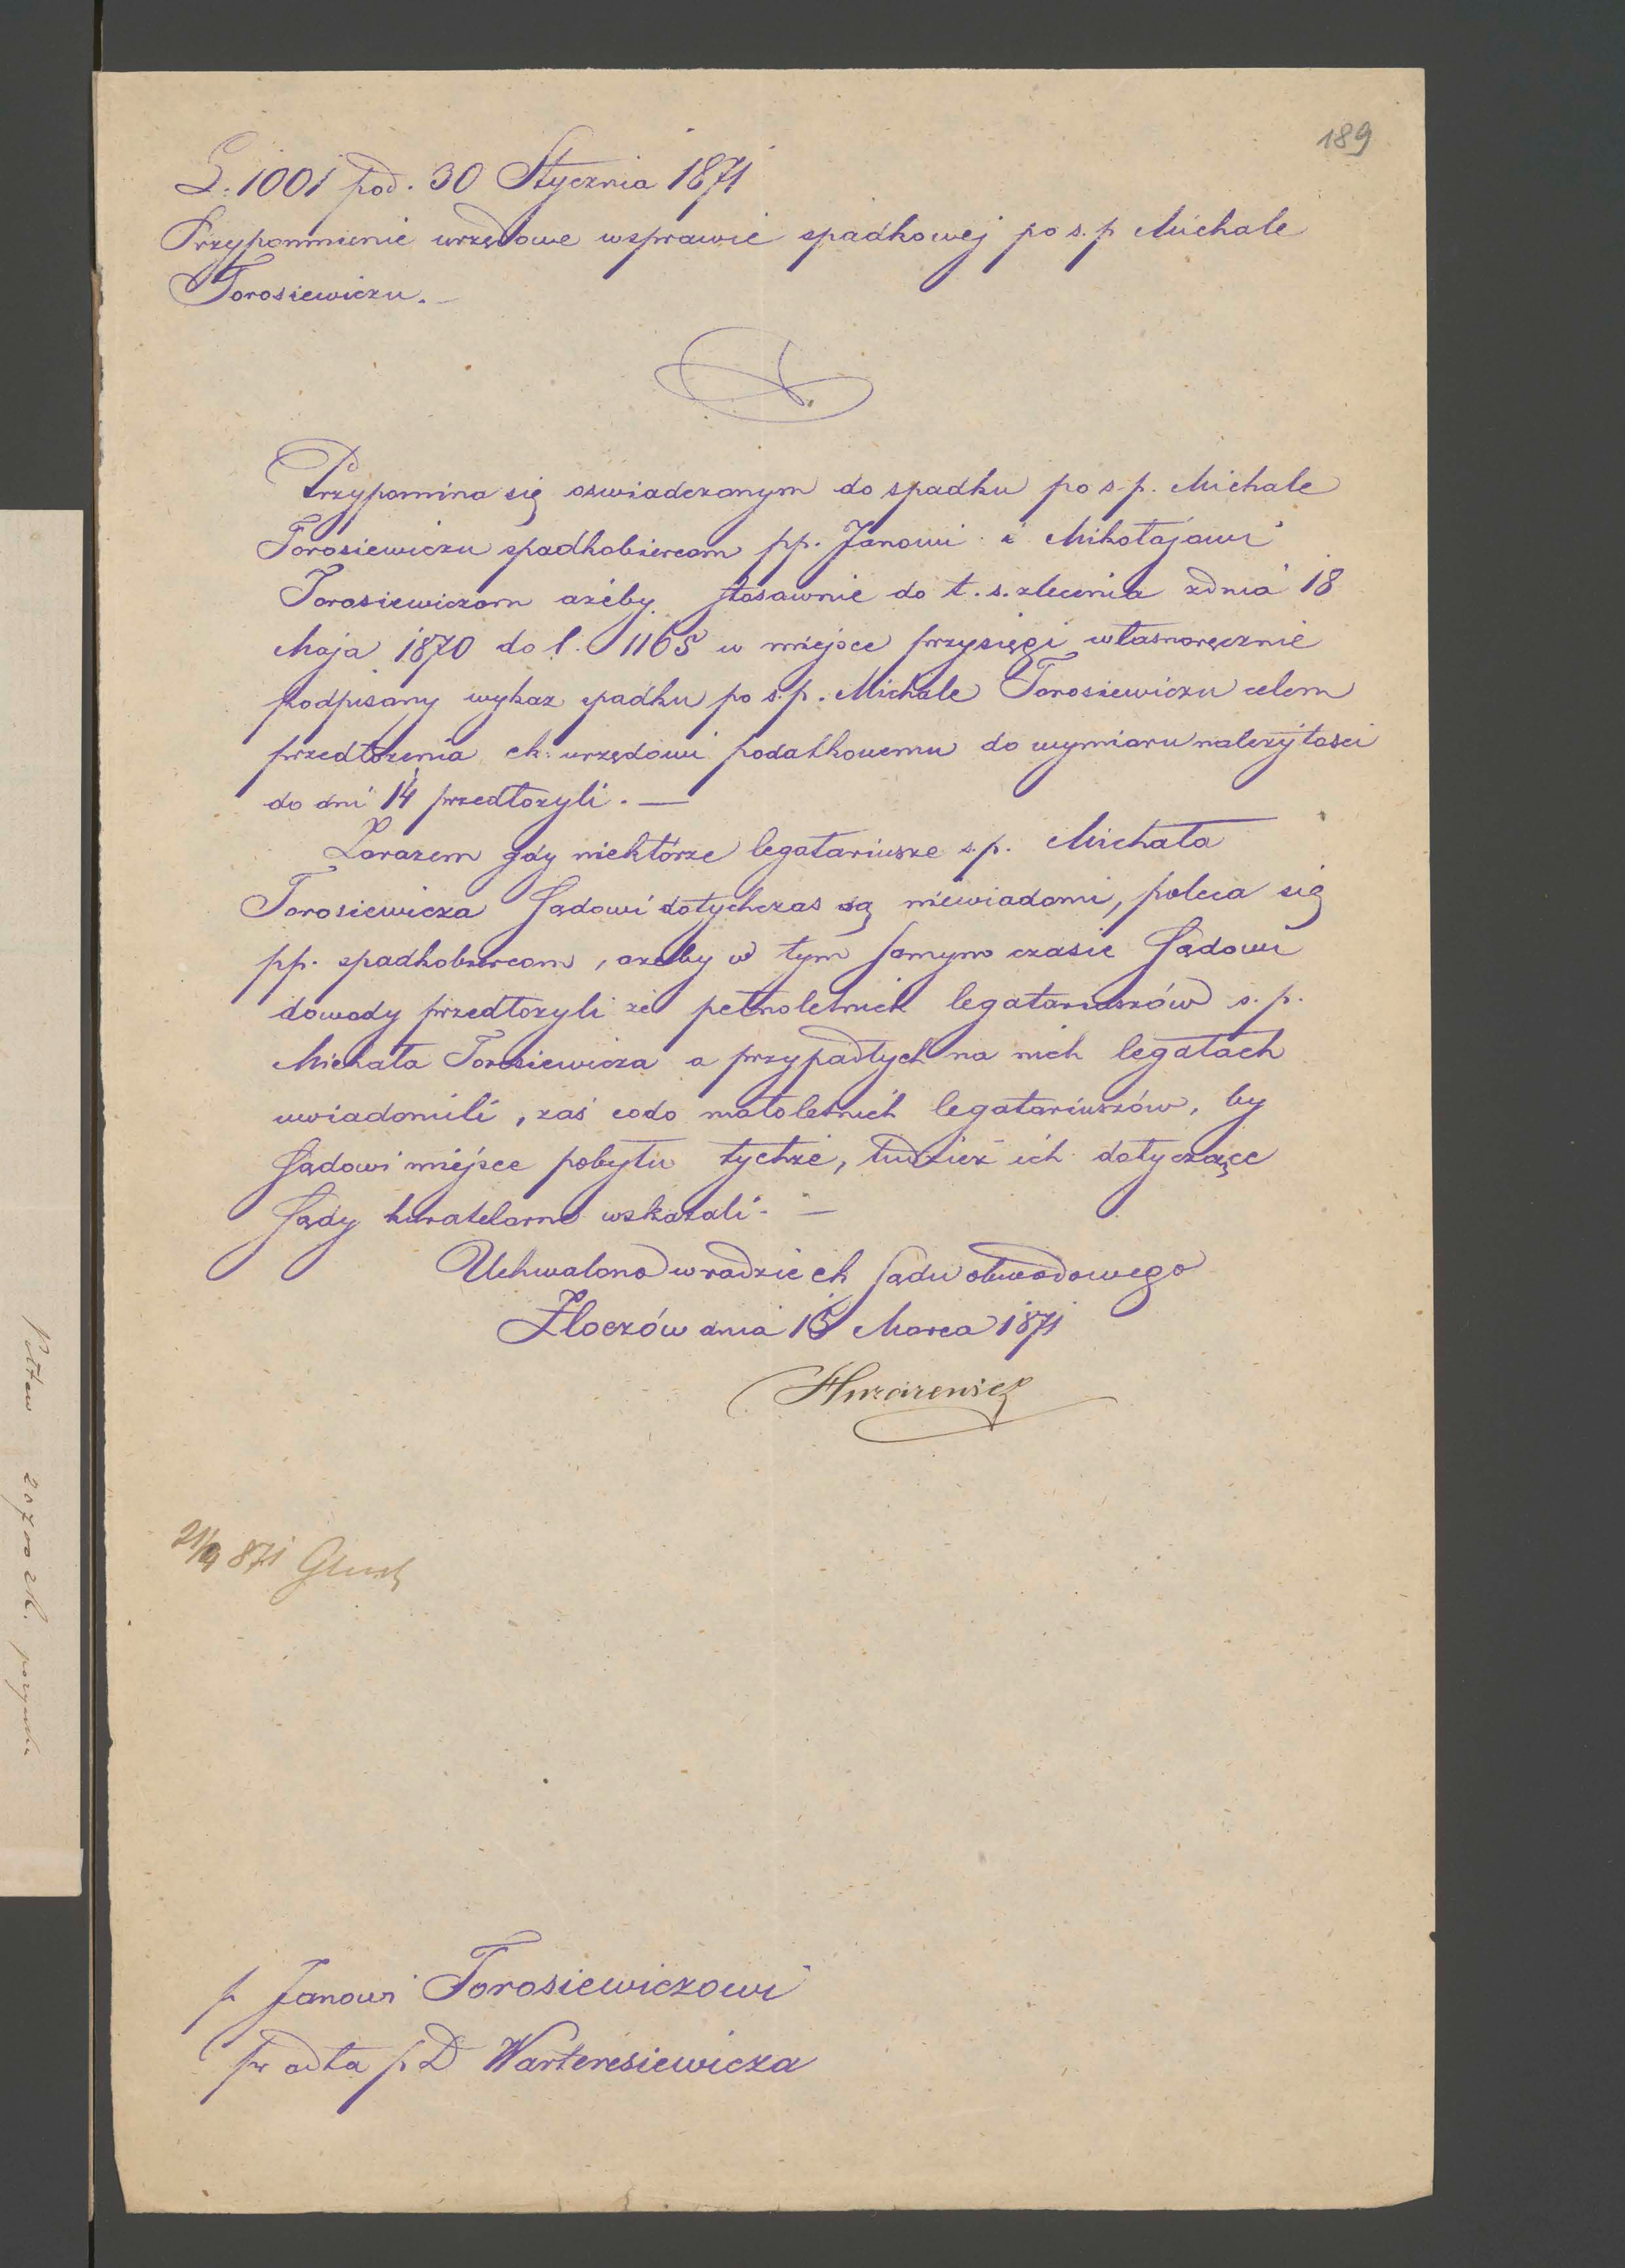 189
L: 1001 pod. 30 Stycznia 1871
Przypomnienie urzędowe wsprawie spadkowej po s. p Michale
Torosiewiczu. —
Przypomina się oswiadczonym do spadku po s. p. Michale
Torosiewiczu spadkobiercom pp. Janowi i Mikołajowi
Torosiewiczom ażeby stosawnie do t. s. zlecenia zdnia 18
Maja 1870 do l. 1165 w miejsce przysięgi własnoręcznie
podpisany wykaz spadku po s. p. Michale Torosiewiczu celem
przedłożenia ck: urzędowi podatkowemu do wymiaru należytosci
do dni 14 przedłożyli. —
Zarazem gdy niektórze legatariusze s. p. Michała
Torosiewicza Sądowi dotychczas są niewiadomi, poleca się
pp. spadkobiercom, ażeby w tym samym czasie Sądowi
dowody przedłożyli że pełnoletnich legatariuszów s. p.
Michała Torosiewicza o przypadłych na nich legatach
uwiadomili, zaś codo małoletnich legatariuszów, by
Sądowi miejsce pobytu tychże, tudzież ich dotyczące
Sądy kuratelarne wskazali. —
Uchwalono wradzie ck sądu obwodowego
Złoczów dnia 15 Marca 1871
871
p Janowi Torosiewiczowi
pr adta p. D Warteresiewicza